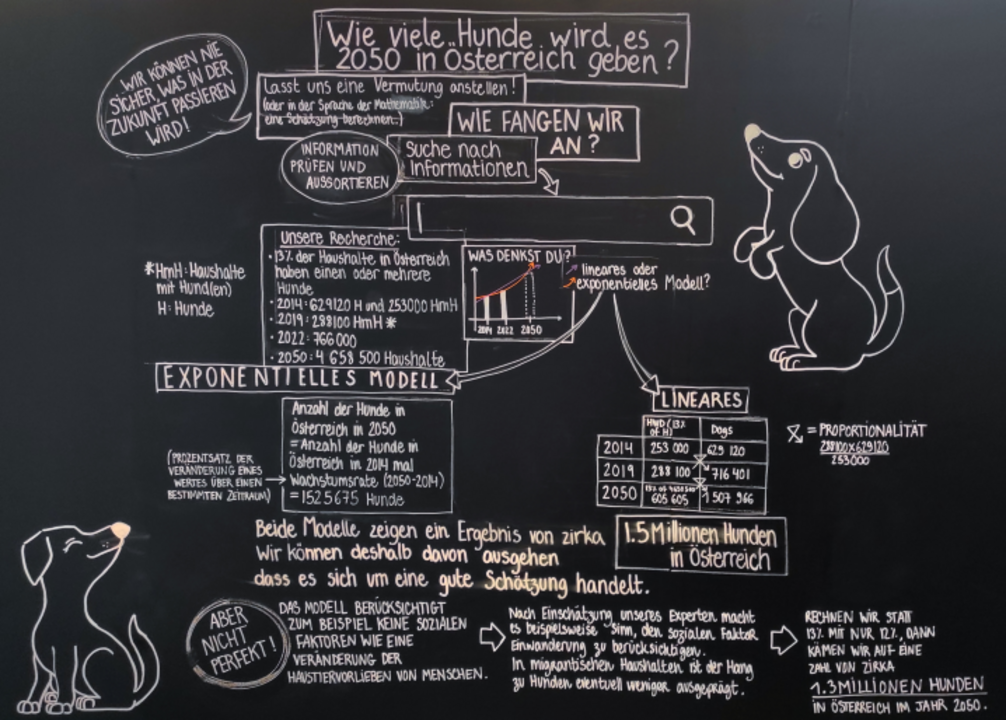 Wie viele Hunde wird es
2050 in Österreich geben?
WIR KÖNNEN NIE
SICHER, WAS IN DER
ZUKUNFT PASSIEREN
WIRD!
Lasst uns eine Vermutung anstellen!
(oder in der Sprache der Mathematik:
eine Schätzung berechnen...)
WIE FANGEN WIR
AN?
INFORMATION
PRÜFEN UND
AUSSORTIEREN
Suche nach
Informationen
Unsere Recherche:
• 13% der Haushalte in Österreich
haben einen oder mehrere
Hunde
• 2014: 629120 H und 253000 HmH
• 2019: 288100 HmH *
• 2022: 766 000
• 2050: 4 658 500 Haushalte
*HmH: Haushalte
mit Hund(en)
H: Hunde
WAS DENKST DU?
2014 2022 2050
lineares oder
exponentielles Modell?
EXPONENTIELLES MODELL
Anzahl der Hunde in
Österreich in 2050
= Anzahl der Hunde in
Österreich in 2014 mal
Wachstumsrate (2050-2014)
= 1525675 Hunde
(PROZENTSATZ DER
VERÄNDERUNG EINES
WERTES ÜBER EINEN
BESTIMMTEN ZEITRAUM)
LINEARES
HWD (13%
of H) Dogs
2014 253 000 629 120
2019 288 100 716 401
2050 13% of 4658500
605 605 1 507 966
= PROPORTIONALITÄT
288100x629120
253000
Beide Modelle zeigen ein Ergebnis von zirka
1.5 Millionen Hunden
in Österreich
Wir können deshalb davon ausgehen
dass es sich um eine gute Schätzung handelt.
ABER
NICHT
PERFEKT!
DAS MODELL BERÜCKSICHTIGT
ZUM BEISPIEL KEINE SOZIALEN
FAKTOREN WIE EINE
VERÄNDERUNG DER
HAUSTIERVORLIEBEN VON MENSCHEN.
Nach Einschätzung unseres Experten macht
es beispielsweise Sinn, den sozialen Faktor
Einwanderung zu berücksichtigen.
In migrantischen Haushalten ist der Hang
zu Hunden eventuell weniger ausgeprägt.
RECHNEN WIR STATT
13% MIT NUR 12%, DANN
KÄMEN WIR AUF EINE
ZAHL VON ZIRKA
1.3 MILLIONEN HUNDEN
IN ÖSTERREICH IM JAHR 2050.